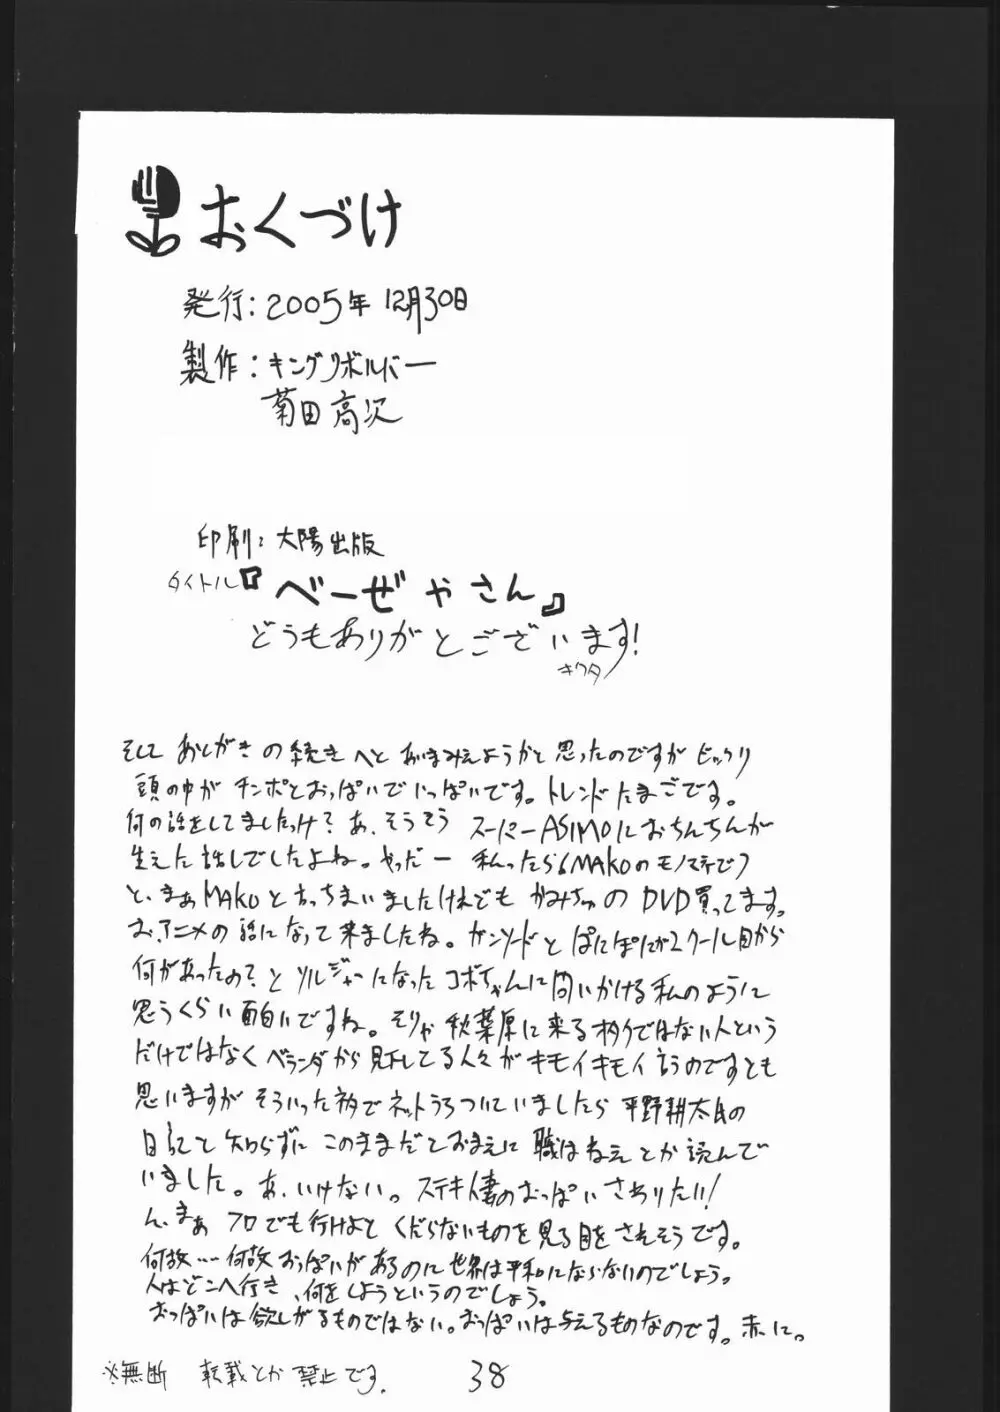 おくづけ
発行:2005年12月30日
製作:キングリボルバー
菊田高次
印刷:大陽出版
タイトル『べーぜやさん』
どうもありがとございます!
キクタ
そしてあとがきの続きへとあいまみえようかと思ったのですがビックリ
頭の中がチンポとおっぱいでいっぱいです。トレンドたまごです。
何の話をしてましたっけ?あ、そうそうスーパーASIMOにおちんちんが
生えた話しでしたよね。やっだー 私ったら(MAKOのモノマネで)
と、まぁMAKOと言っちまいましたけれどもかみちゅのDVD買ってます。
お、アニメの話になって来ましたね。ガンソードとぱにぽにが2クール目から
何があったの?とソルジャーになったコボちゃんに問いかける私のように
思うくらい面白いですね。そりゃ秋葉原に来るオタクではない人という
だけではなくベランダから見下してる人々がキモイキモイ言うのですとも
思いますがそういった訳でネットうろついていましたら平野耕太氏の
日記と知らずにこのままだておまえに職はねえとか読んで
いました。あ、いけない。ステキ人妻のおっぱいさわりたい!
ん、まぁプロでも行けよとくだらないものを見る目をされそうです。
何故……何故おっぱいがあるのに世界は平和にならないのでしょう。
人はどこへ行き、何をしようというのでしょう。
おっぱいは欲しがるものではない。おっぱいは与えるものなのです。赤に。
※無断 転載とか禁止です.
38